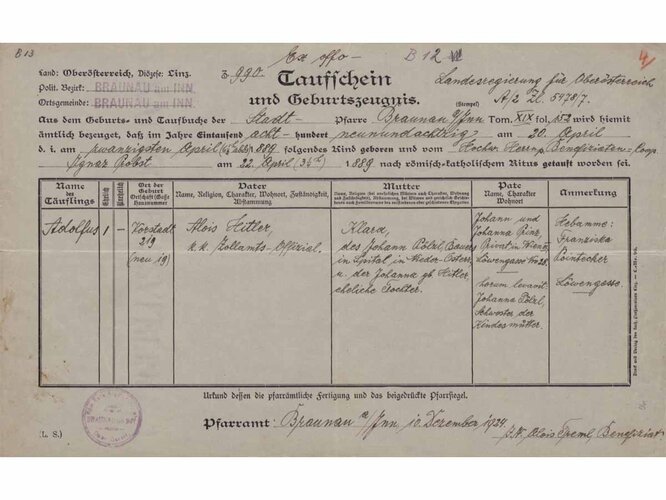 B 13
Ex offo
B 12 VI
4
Z 990.
Taufschein
und Geburtszeugnis.
Land: Oberösterreich, Diözese: Linz.
Polit. Bezirk: BRAUNAU am INN
Ortsgemeinde: BRAUNAU am INN
(Stempel)
Landesregierung für Oberösterreich
A/2 Zl. 5478/7.
Aus dem Geburts- und Taufbuche der Stadt- Pfarre Braunau a/Inn Tom. XIX fol. 152 wird hiermit
ämtlich bezeugt, daß im Jahre Eintausend acht- hundert neunundachtzig am 20. April
d. i. am zwanzigsten April 1889 folgendes Kind geboren und vom Hochw. Herrn Benefiziaten-Coop.
Ignaz Probst am 22. April 1889 nach römisch-katholischem Ritus getauft worden sei.
Name des Täuflings
Ehelich
Unehelich
Ort der Geburt
Ortschaft Gasse
Hausnummer
Vater
Name, Religion, Charakter, Wohnort, Zuständigkeit,
Abstammung
Mutter
Pate
Name, Charakter
Wohnort
Anmerkung
Adolfus
1
–
Vorstadt
219
(neu 19)
Alois Hitler,
k. k. Zollamts-Offizial.
Klara,
des Johann Pölzl, Bauers
in Spital in Nieder-Österr.
u. der Johanna gb. Hitler
eheliche Tochter.
Johann und
Johanna Prinz,
Privat in Wien
Löwengasse No 28.
horum levavit
Johanna Pölzl,
Schwester der
Kindesmutter.
Hebamme:
Franziska
Pointecker
Löwengasse.
Urkund dessen die pfarrämtliche Fertigung und das beigedrückte Pfarrsiegel.
Pfarramt Braunau a/Inn, 10. Dezember 1924
(L. S.)
Alois Treml, Benefiziat.